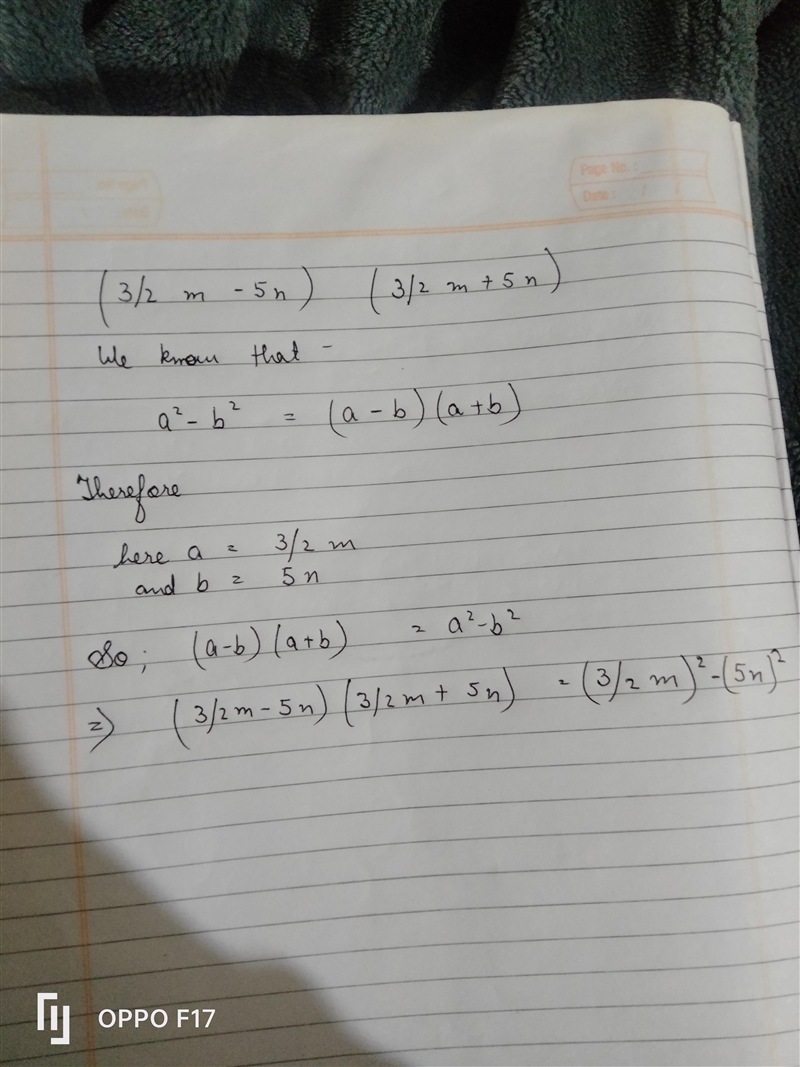 Page No. :
Date : / /
(3/2 m - 5n) (3/2 m + 5n)
We know that -
a² - b² = (a - b) (a + b)
Therefore
here a = 3/2 m
and b = 5n
So; (a-b) (a+b) = a² - b²
=> (3/2m - 5n) (3/2m + 5n) = (3/2 m)² - (5n)²
OPPO F17